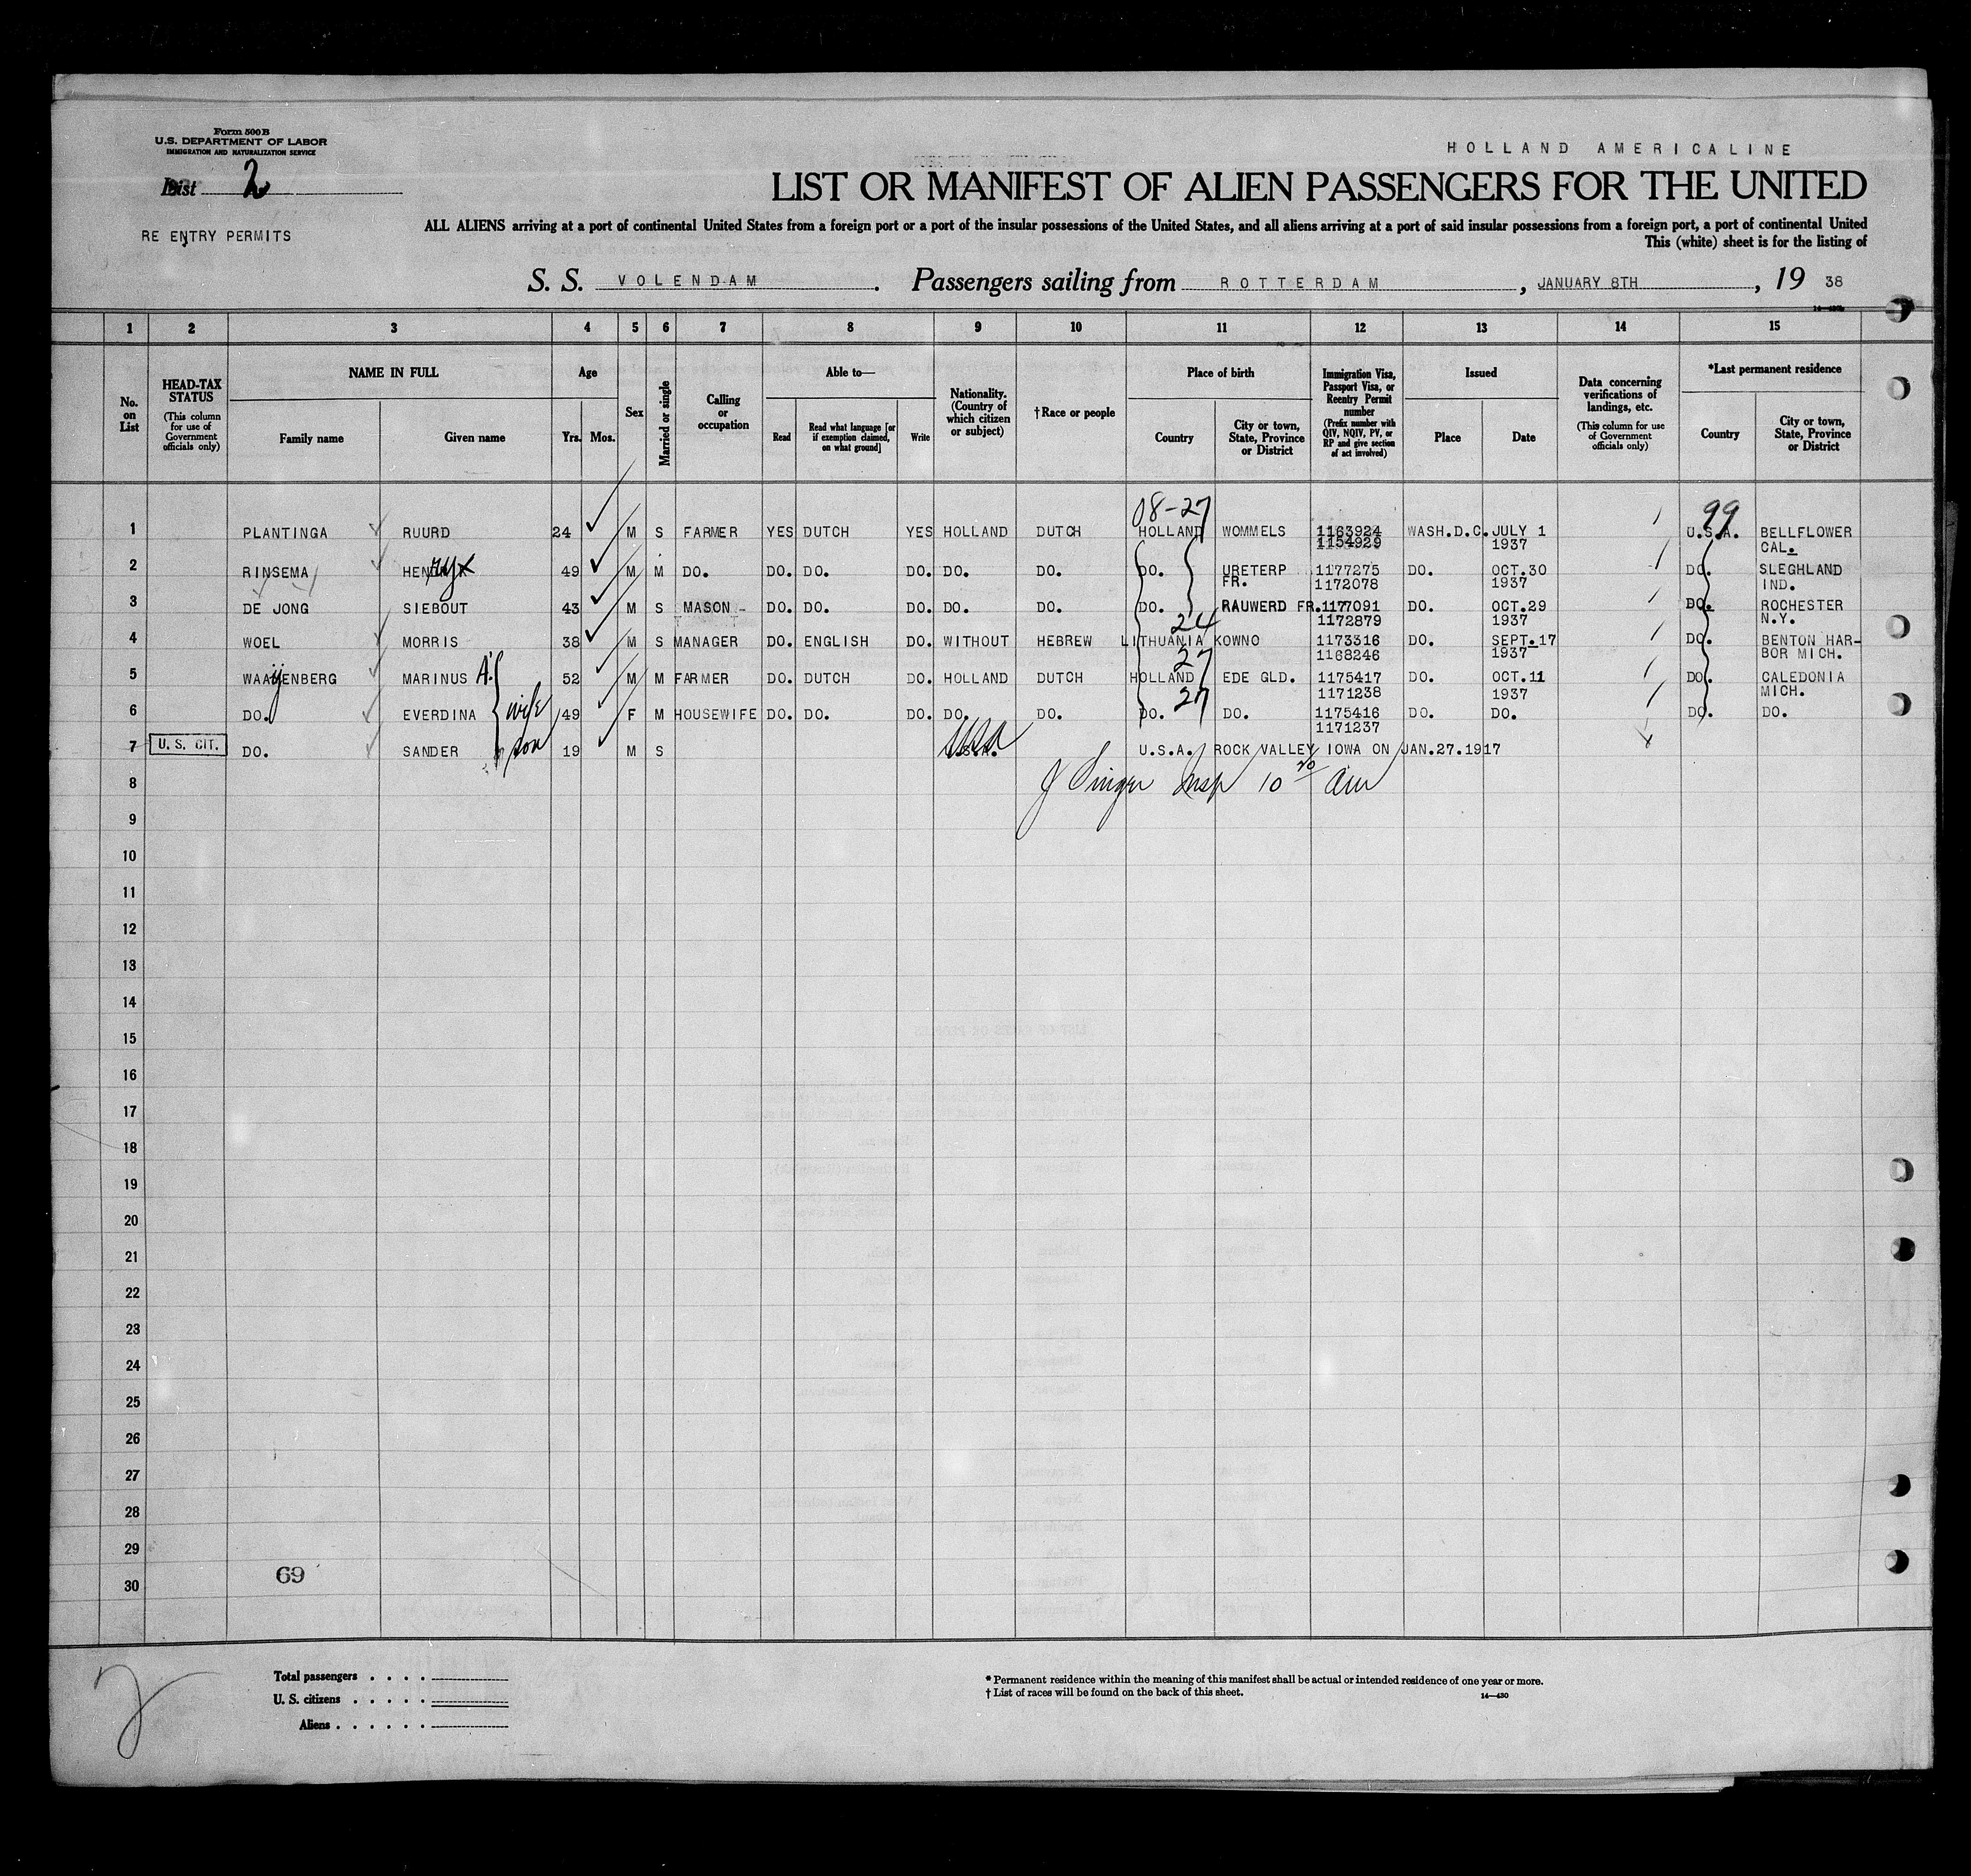 Form 500 B
U.S. DEPARTMENT OF LABOR
IMMIGRATION AND NATURALIZATION SERVICE
HOLLAND AMERICALINE
List 2
LIST OR MANIFEST OF ALIEN PASSENGERS FOR THE UNITED
RE ENTRY PERMITS
ALL ALIENS arriving at a port of continental United States from a foreign port or a port of the insular possessions of the United States, and all aliens arriving at a port of said insular possessions from a foreign port, a port of continental United
This (white) sheet is for the listing of
S. S. VOLENDAM. Passengers sailing from ROTTERDAM, JANUARY 8TH, 19 38
1 2 3 4 5 6 7 8 9 10 11 12 13 14 15
No. on List
HEAD-TAX STATUS (This column for use of Government officials only)
NAME IN FULL
Family name Given name
Age
Yrs. Mos.
Sex
Married or single
Calling or occupation
Able to—
Read
Read what language [or if exemption claimed, on what ground]
Write
Nationality. (Country of which citizen or subject)
† Race or people
Place of birth
Country
City or town, State, Province or District
Immigration Visa, Passport Visa, or Reentry Permit number (Prefix number with QIV, NQIV, PV, or RP and give section of act involved)
Issued
Place Date
Data concerning verifications of landings, etc. (This column for use of Government officials only)
*Last permanent residence
Country
City or town, State, Province or District
08-27 99
1 PLANTINGA RUURD 24 M S FARMER YES DUTCH YES HOLLAND DUTCH HOLLAND WOMMELS 1163924 WASH.D.C. JULY 1 U.S.A. BELLFLOWER
1154929 1937 CAL.
2 RINSEMA HENDRYX 49 M M DO. DO. DO. DO. DO. DO. DO. URETERP 1177275 DO. OCT.30 DO. SLEGHLAND
FR. 1172078 1937 IND.
3 DE JONG SIEBOUT 43 M S MASON - DO. DO. DO. DO. DO. DO. RAUWERD FR. 1177091 DO. OCT.29 DO. ROCHESTER
24 1172879 1937 N.Y.
4 WOEL MORRIS 38 M S MANAGER DO. ENGLISH DO. WITHOUT HEBREW LITHUANIA KOWNO 1173316 DO. SEPT.17 DO. BENTON HAR-
27 1168246 1937 BOR MICH.
5 WAAIJENBERG MARINUS A. 52 M M FARMER DO. DUTCH DO. HOLLAND DUTCH HOLLAND EDE GLD. 1175417 DO. OCT.11 DO. CALEDONIA
27 1171238 1937 MICH.
6 DO. EVERDINA wife 49 F M HOUSEWIFE DO. DO. DO. DO. DO. DO. DO. 1175416 DO. DO. DO. DO.
1171237
7 U. S. CIT. DO. SANDER son 19 M S U.S.A. U.S.A. ROCK VALLEY IOWA ON JAN.27.1917
J Singer Insp 10 20 am
8
9
10
11
12
13
14
15
16
17
18
19
20
21
22
23
24
25
26
27
28
29
30
69
2
Total passengers
U. S. citizens
Aliens
* Permanent residence within the meaning of this manifest shall be actual or intended residence of one year or more.
† List of races will be found on the back of this sheet.
14—430